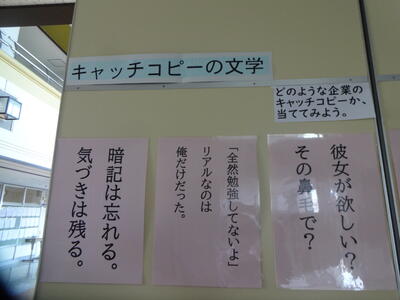 キャッチコピーの文学
どのような企業の
キャッチコピーか、
当ててみよう。
彼女が欲しい？
その鼻毛で？
「全然勉強してないよ」
リアルなのは
俺だけだった。
暗記は忘れる。
気づきは残る。